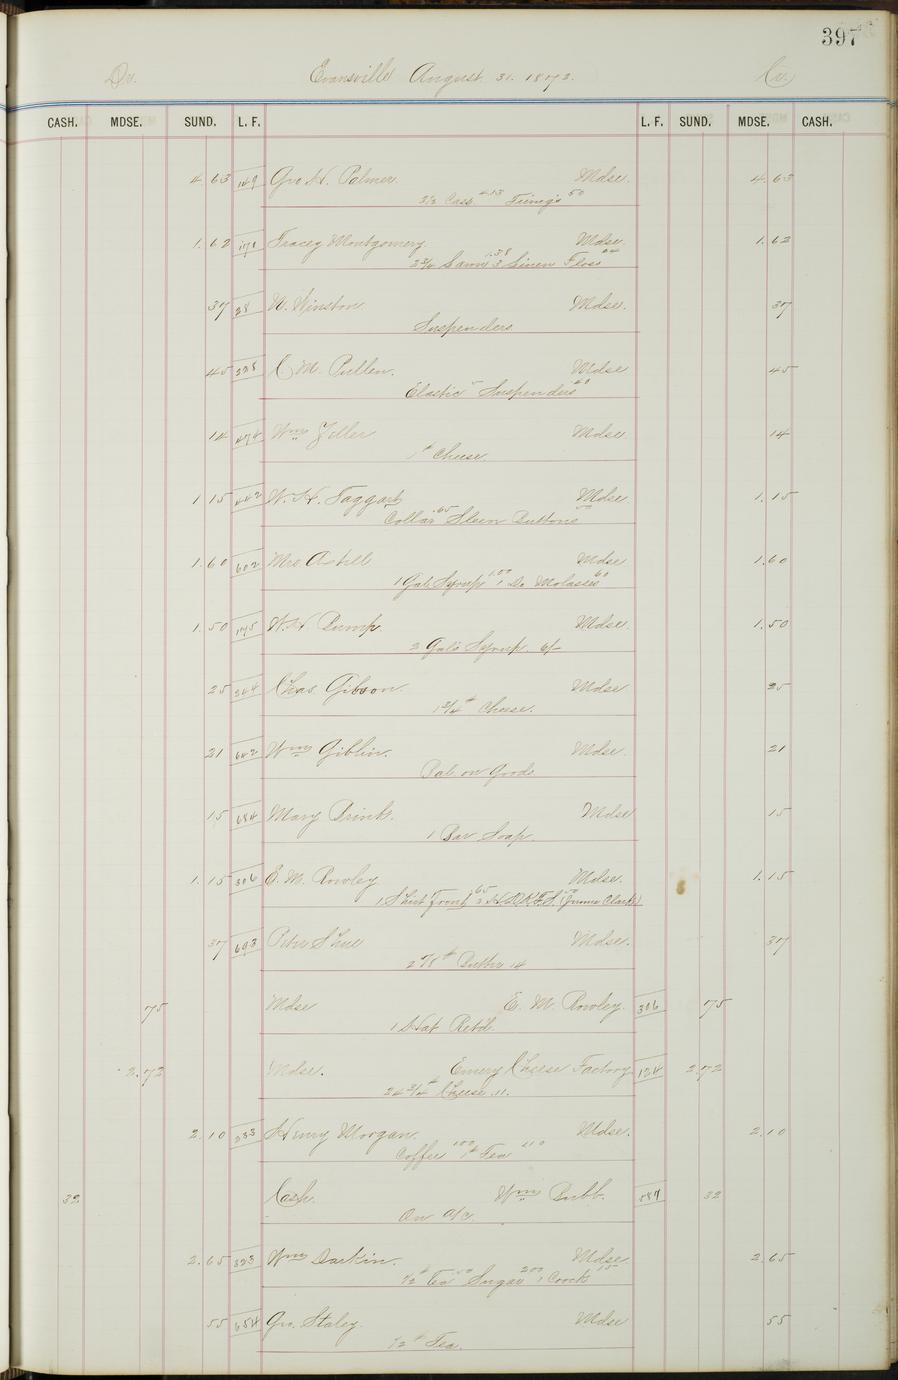 397
Dr. Evansville August 31. 1872. Cr.
CASH. MDSE. SUND. L. F. L. F. SUND. MDSE. CASH.
4 63 149 Geo H. Palmer Mdse. 4.63
3/2 Cass 4.13 50
1.62 Tracey Montgomery Mdse. 1.62
2 3/4 1.38 3 Linen Floss 24
37 28 W. Winston Mdse. 37
Suspenders
45 328 C. M. Pullen. Mdse 45
Elastic 5 Suspenders 40
14 474 Wm Zeller Mdse 14
1# Cheese.
1 15 442 W. H. Taggart Mdse 1.15
Collar .65 Sleeve Buttons 50
1.60 602 Mrs. Axtell Mdse 1.60
1 Gal Syrup 1.00 1 Do Molasses 60
1.50 175 W. H. Bump. Mdse. 1.50
2 Gals Syrup 6/-
25 264 Chas. Gibson. Mdse 25
1 3/4# Cheese.
21 642 Wm Giblin. Mdse. 21
Bal on Goods
15 684 Mary Brink. Mdse 15
1 Bar Soap.
1.15 306 E. M. Rowley Mdse. 1.15
1 Shirt Front .65 2 H.D.K.F.S. 50 (Jerome Clark)
37 693 Peter Shue Mdse. 37
2 5/8# Butter 14
75 Mdse E. M. Rowley. 306 75
1 Hat Retd.
2.72 Mdse. Emery Cheese Factory 124 2.72
24 3/4# Cheese .11.
2.10 233 Henry Morgan. Mdse. 2.10
Coffee 1.00 1# Tea 1.10
32 Cash. Wm Bubb. 587 32
On a/c.
2.65 323 Wm Darkin. Mdse 2.65
1/2# Tea 50 Sugar 200 1 Crock 15
55 654 Geo. Staley. Mdse 55
1/2# Tea.